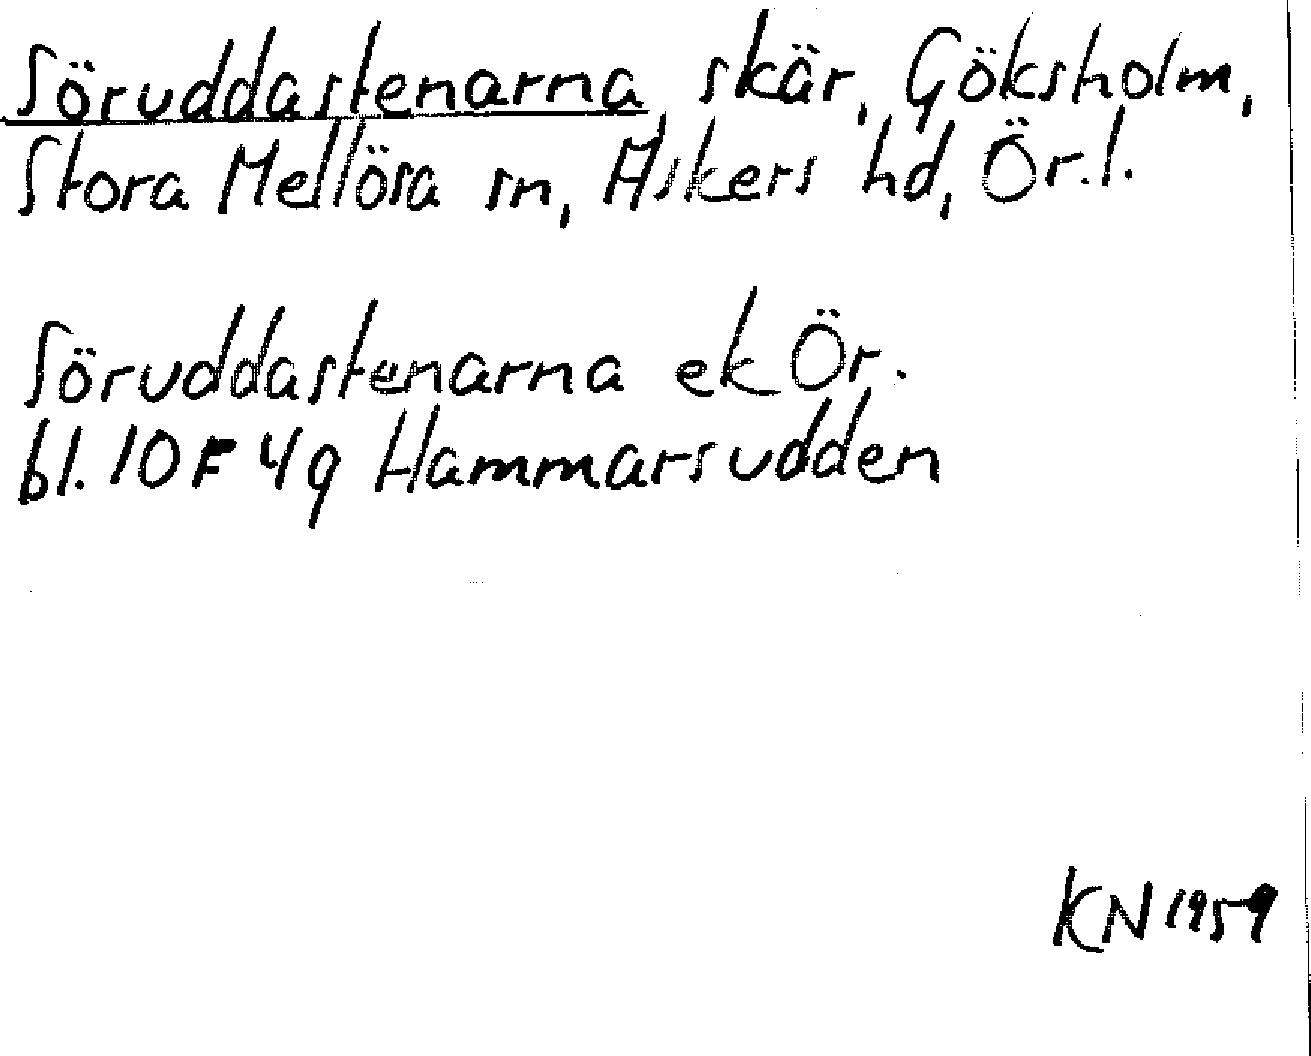 Söruddastenarna skär, Göksholm,
Stora Mellösa sn, Askers hd, Ör.l.
Söruddastenarna ek Ör.
bl. 10F 4g Hammarsudden
KN 1959